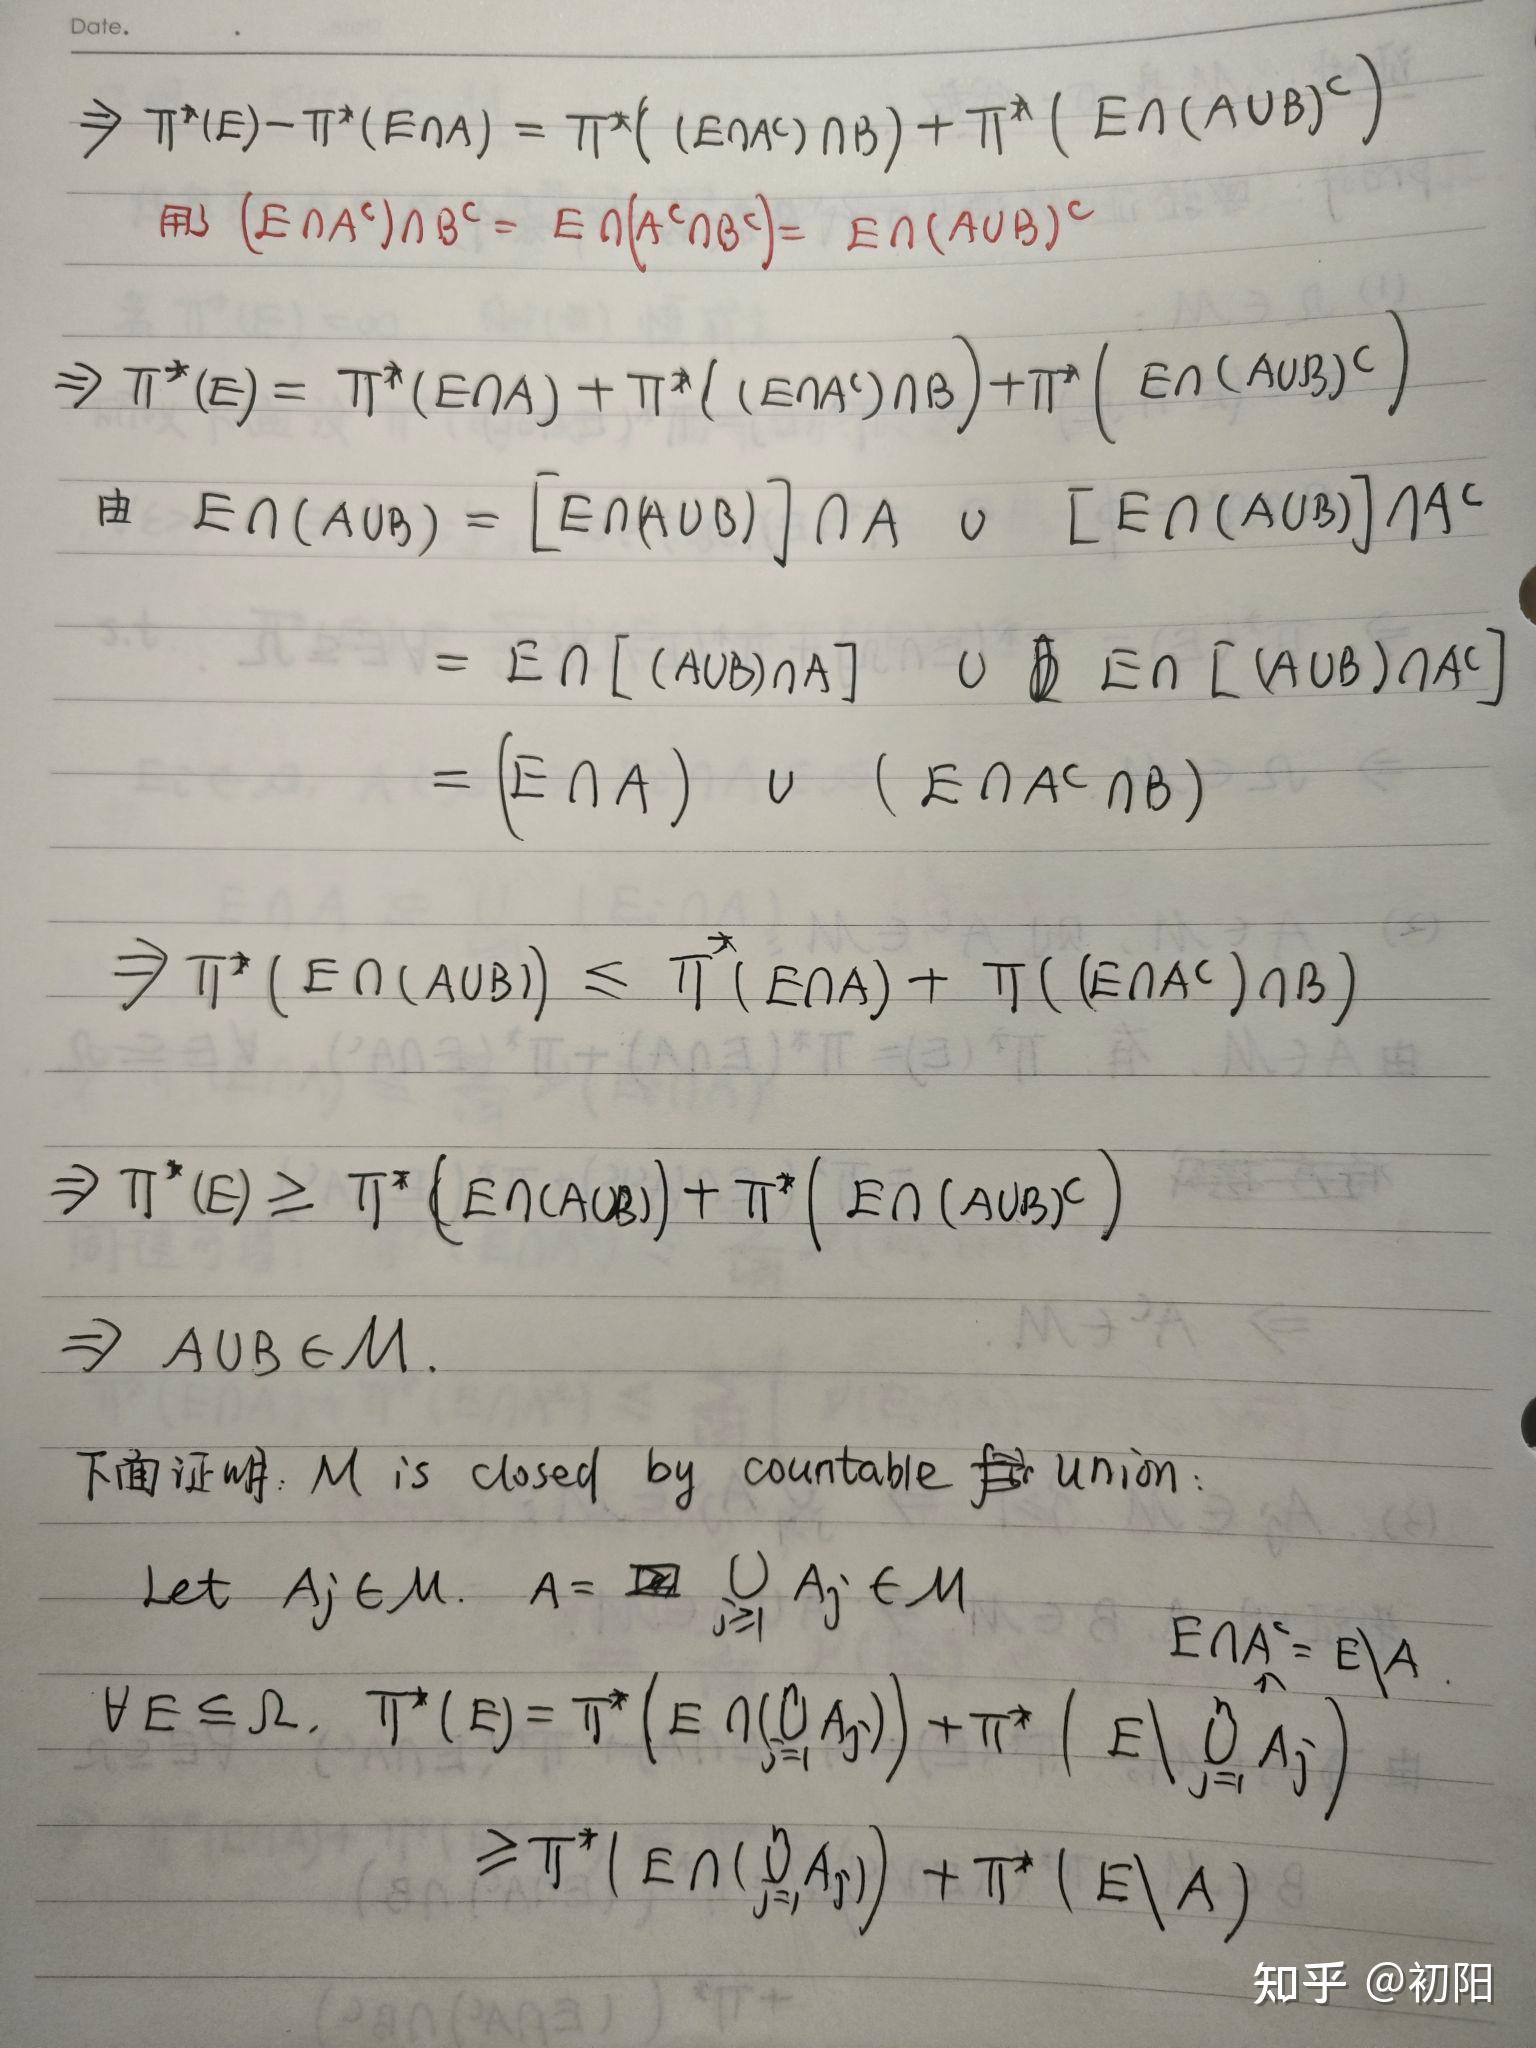 Date.
⇒ π*(E)-π*(E∩A) = π*((E∩Aᶜ)∩B) + π*(E∩(A∪B)ᶜ)
用了 (E∩Aᶜ)∩Bᶜ = E∩(Aᶜ∩Bᶜ) = E∩(A∪B)ᶜ
⇒ π*(E) = π*(E∩A) + π*((E∩Aᶜ)∩B) + π*(E∩(A∪B)ᶜ)
由 E∩(A∪B) = [E∩(A∪B)]∩A ∪ [E∩(A∪B)]∩Aᶜ
= E∩[(A∪B)∩A] ∪ E∩[(A∪B)∩Aᶜ]
= (E∩A) ∪ (E∩Aᶜ∩B)
⇒ π*(E∩(A∪B)) ≤ π*(E∩A) + π((E∩Aᶜ)∩B)
⇒ π*(E) ≥ π*(E∩(A∪B)) + π*(E∩(A∪B)ᶜ)
⇒ A∪B∈M.
下面证明: M is closed by countable union:
Let Aj∈M. A = ⋃_{j≥1} Aj ∈M
E∩Aᶜ = E\A.
∀E⊆Ω, π*(E) = π*(E∩(⋃_{j=1}^{n} Aj)) + π*(E\⋃_{j=1}^{n} Aj)
≥ π*(E∩(⋃_{j=1}^{n} Aj)) + π*(E\A)
知乎 @初阳